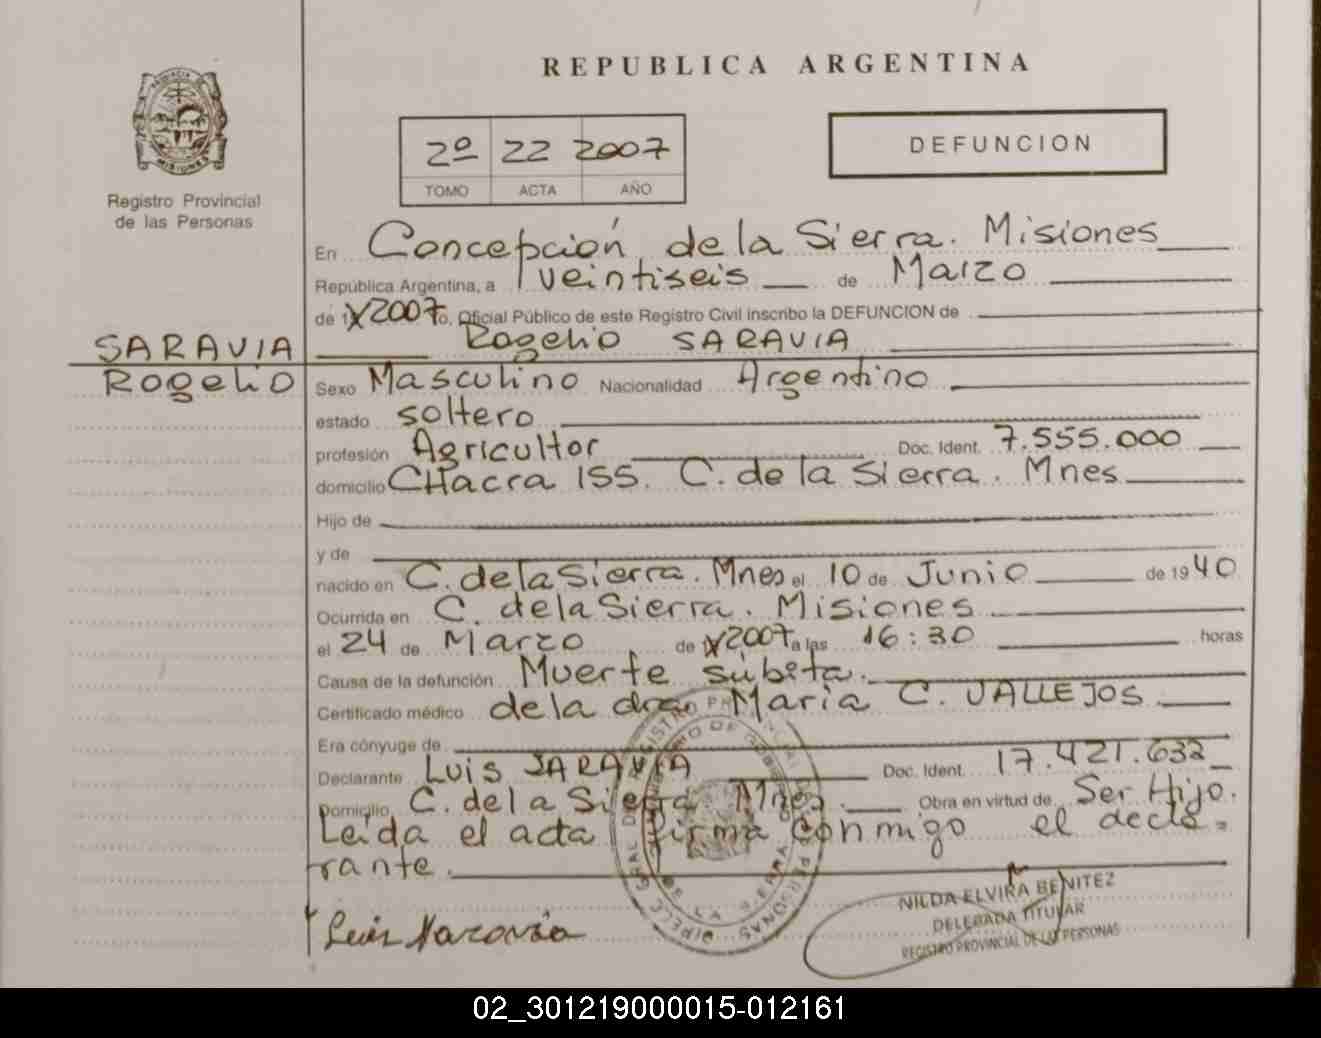 REPUBLICA ARGENTINA
PROVINCIA DE
MISIONES
Registro Provincial
de las Personas
2º 22 2007
TOMO ACTA AÑO
DEFUNCION
En Concepción de la Sierra. Misiones
República Argentina, a veintiseis de Marzo
de 1 2007 o, Oficial Público de este Registro Civil inscribo la DEFUNCION de
SARAVIA Rogelio SARAVIA
Rogelio Sexo Masculino Nacionalidad Argentino
estado soltero
profesión Agricultor Doc. Ident. 7.555.000
domicilio CHacra 155. C. de la Sierra. Mnes
Hijo de
y de
nacido en C. de la Sierra. Mnes el 10 de Junio de 1940
Ocurrida en C. de la Sierra. Misiones
el 24 de Marzo de 2007 a las 16:30 horas
Causa de la defunción Muerte súbita.
Certificado médico de la dra María C. VALLEJOS
Era cónyuge de
Declarante Luis SARAVIA Doc. Ident. 17.421.632
Domicilio C. de la Sierra Mnes. Obra en virtud de Ser Hijo.
Leída el acta firma conmigo el decla=
rante.
Luis Saravia
NILDA ELVIRA BENITEZ
DELEGADA TITULAR
REGISTRO PROVINCIAL DE LAS PERSONAS
02_301219000015-012161